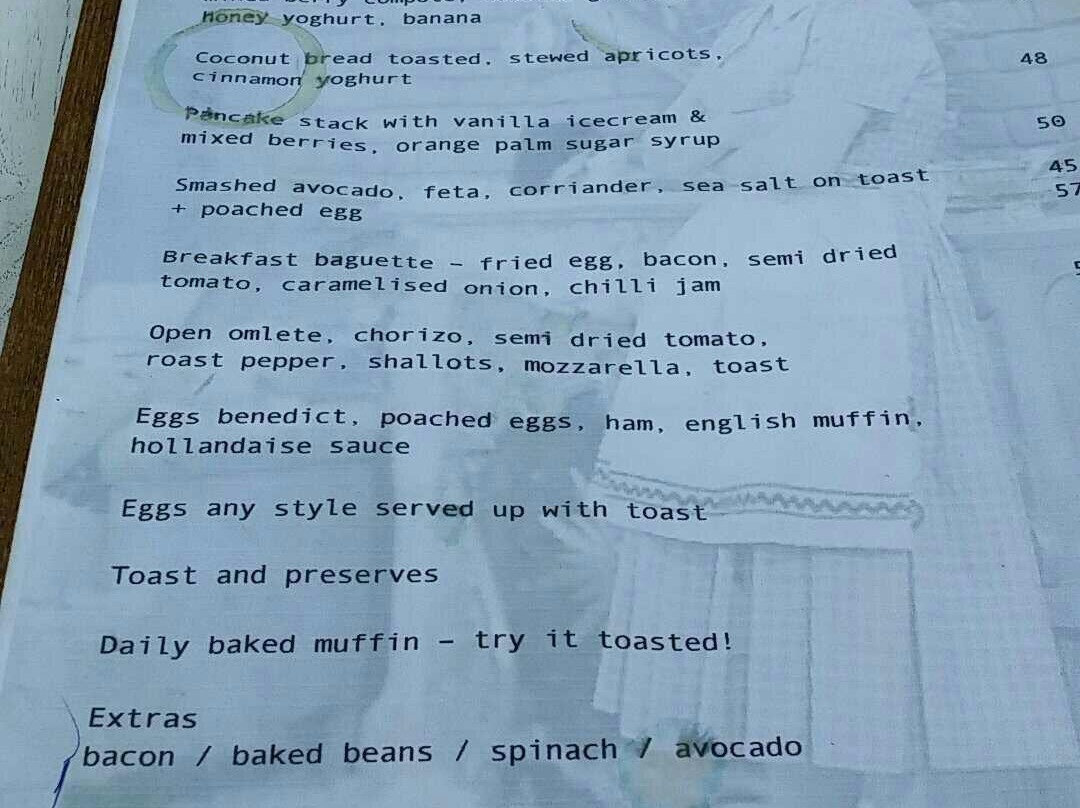 Honey yoghurt, banana
Coconut bread toasted, stewed apricots, 48
cinnamon yoghurt
Pancake stack with vanilla icecream &
mixed berries, orange palm sugar syrup 50
Smashed avocado, feta, corriander, sea salt on toast 45
+ poached egg 57
Breakfast baguette – fried egg, bacon, semi dried
tomato, caramelised onion, chilli jam
Open omlete, chorizo, semi dried tomato,
roast pepper, shallots, mozzarella, toast
Eggs benedict, poached eggs, ham, english muffin,
hollandaise sauce
Eggs any style served up with toast
Toast and preserves
Daily baked muffin – try it toasted!
Extras
bacon / baked beans / spinach / avocado